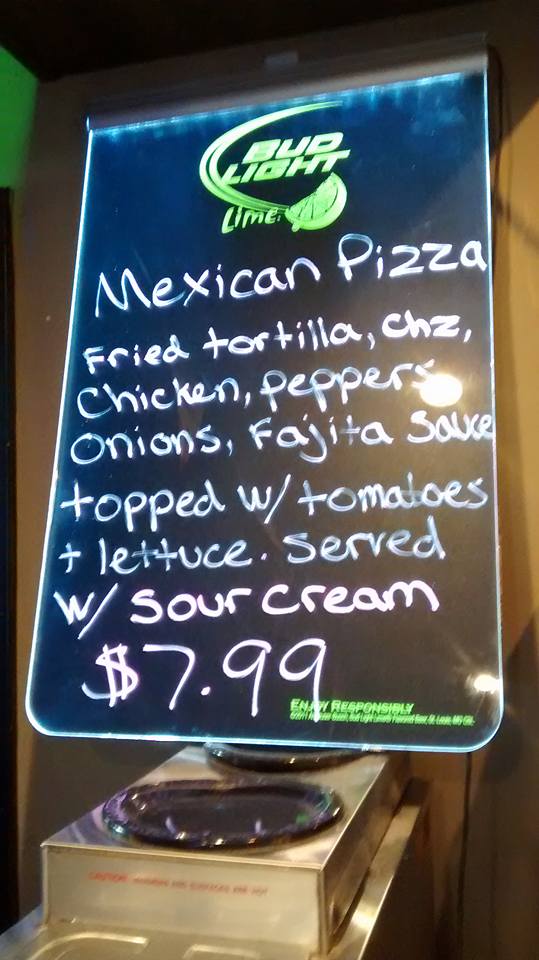 BUD
LIGHT
Lime.
Mexican Pizza
Fried tortilla, chz,
Chicken, peppers
onions, Fajita Sauce
topped w/ tomatoes
+ lettuce. Served
w/ sour cream
$7.99
ENJOY RESPONSIBLY
CAUTION